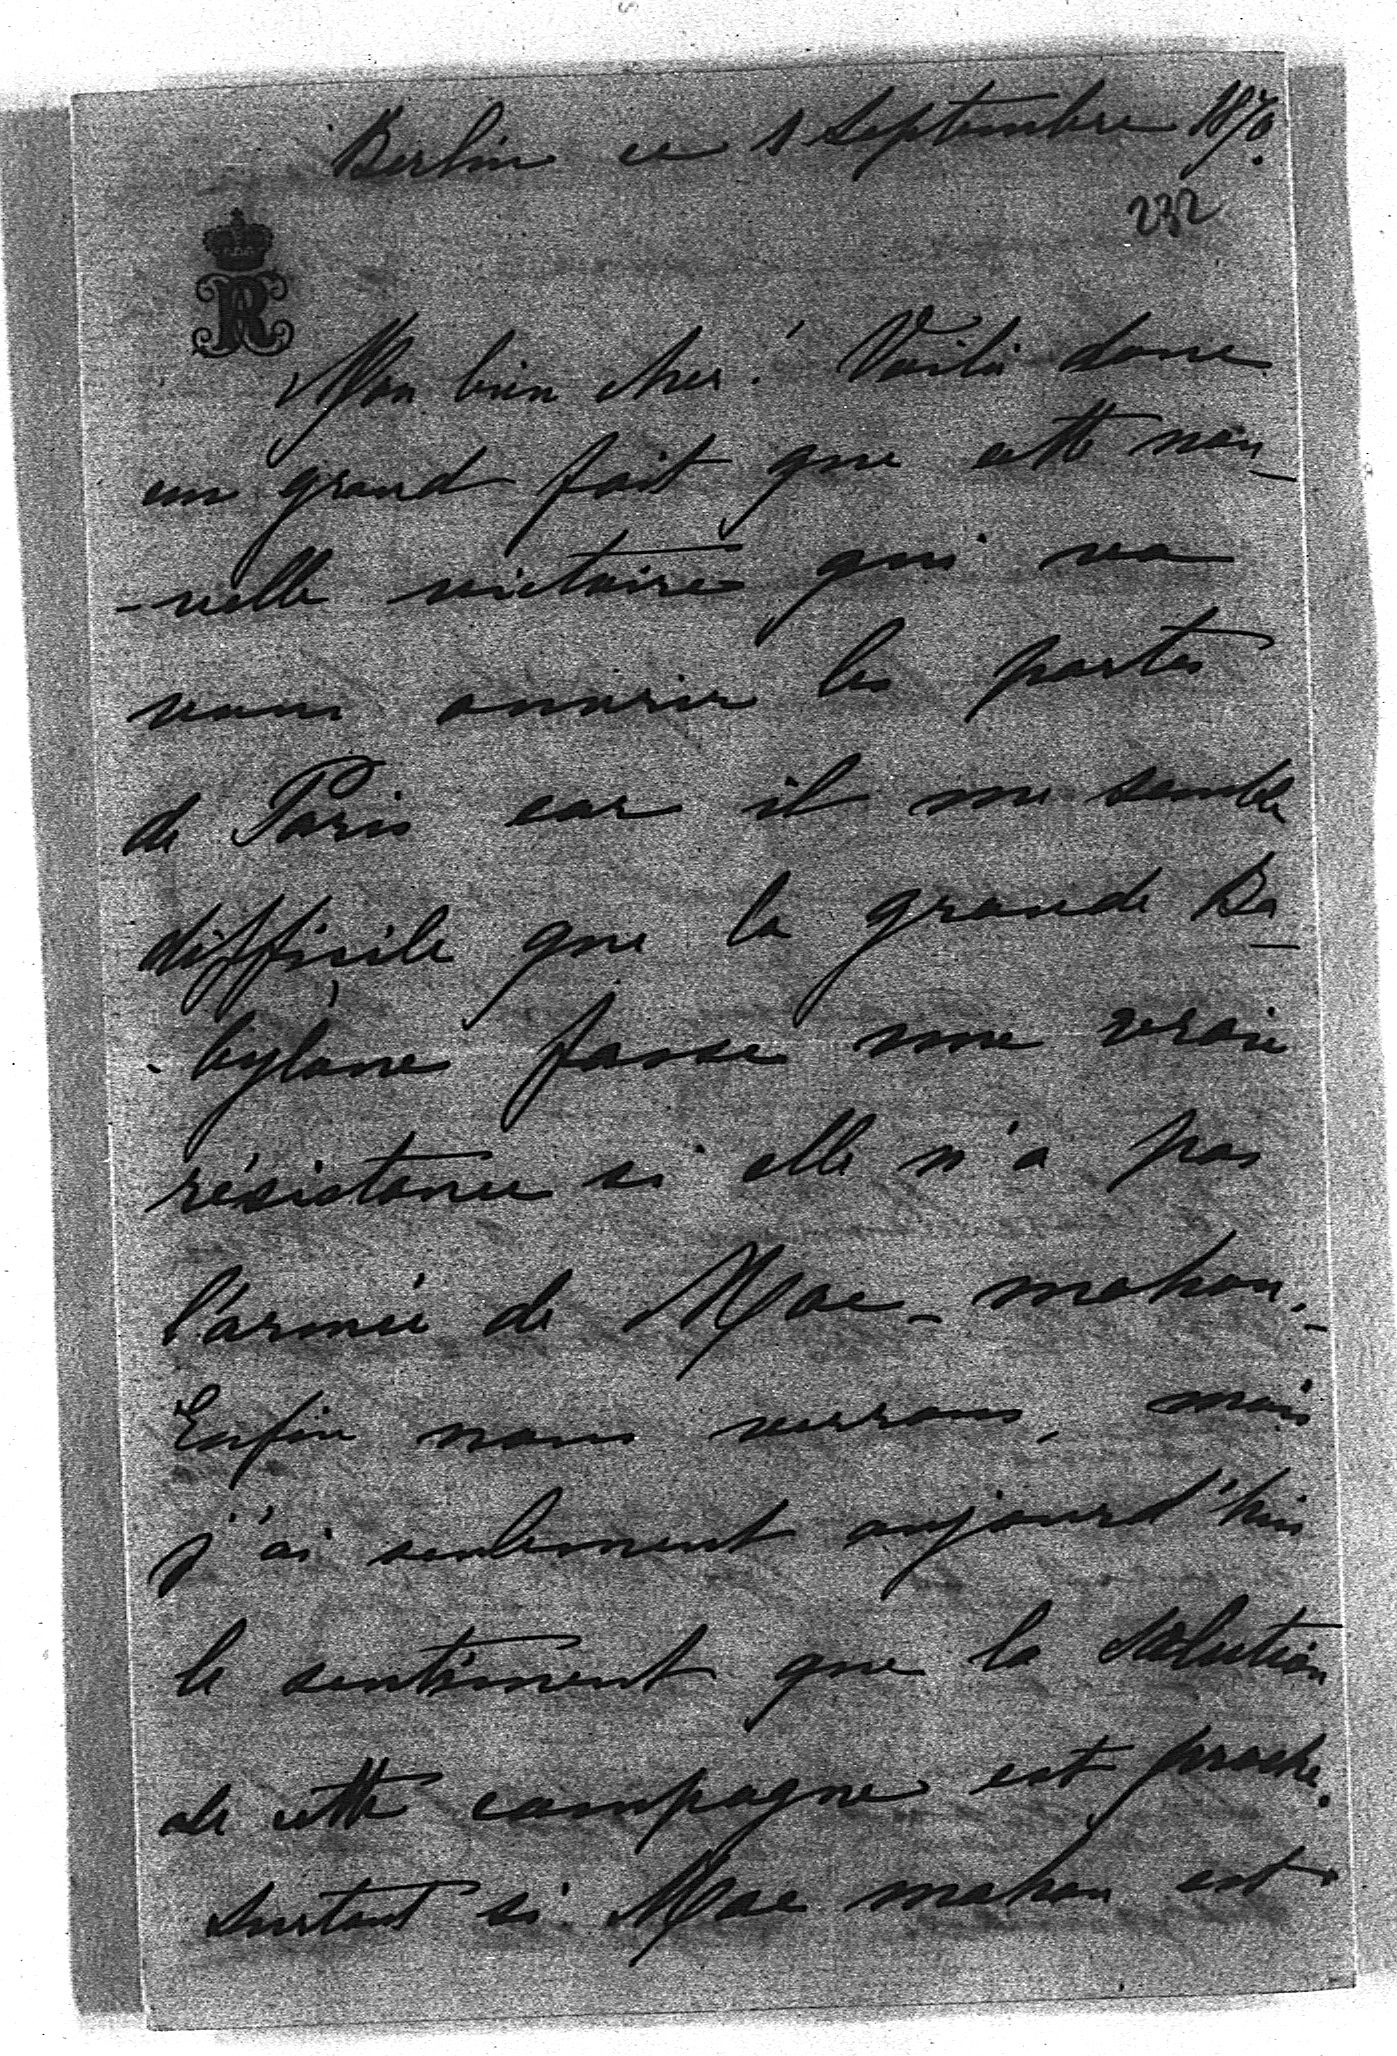 Berlin ce 1 Septembre 1870.
232
R
Mon bien cher! Voilà donc
un grand fait que cette nou-
-velle victoire qui va
vous ouvrir les portes
de Paris car il me semble
difficile que la grande Ba-
-bylone fasse une vraie
résistance si elle n'a pas
l'armée de Mac-mahon.-
Enfin nous verrons, mais
j'ai seulement aujourd'hui
le sentiment que la solution
de cette campagne est proche.
Surtout si Mac mahon est